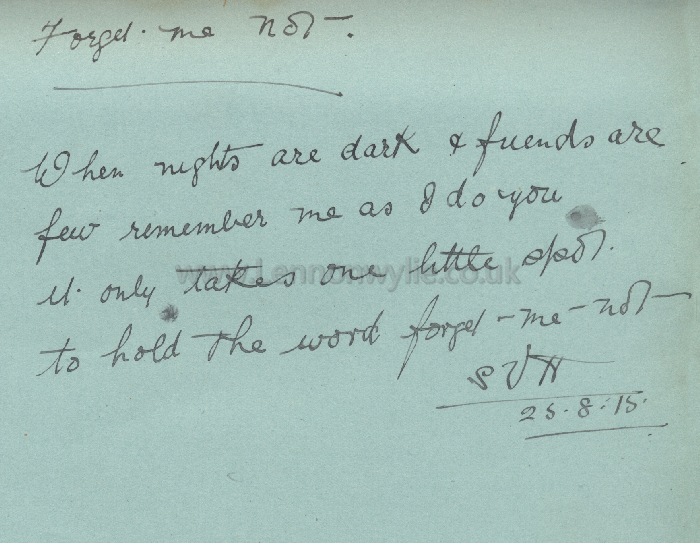 Forget-me not-.
When nights are dark & friends are
few remember me as I do you
it only takes one little spot.
to hold the word forget-me-not-
www.Lennonwylie.co.uk
SVH
25.8.15.